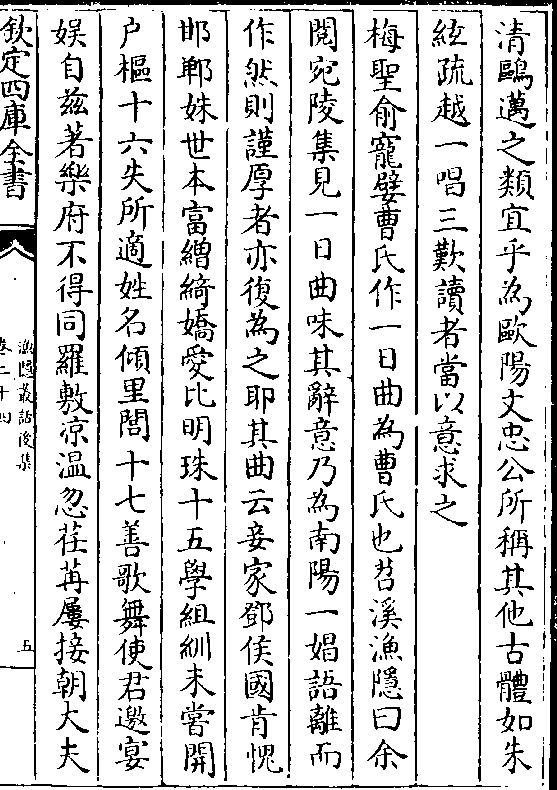 清鷗邁之類宜乎為歐陽文忠公所稱其他古體如朱
絃疏越一唱三歎讀者當以意求之
梅聖俞寵嬖曹氏作一日曲為曹氏也苕溪漁隱曰余
閱宛陵集見一日曲味其辭意乃為南陽一娼語離而
作然則謹厚者亦復為之耶其曲云妾家鄧侯國肯愧
邯鄲姝世本富繒綺嬌愛比明珠十五學組紃未嘗開
户樞十六失所適姓名傾里閭十七善歌舞使君邀宴
娱自兹著樂府不得同羅敷凉温忽荏苒屢接朝大夫
欽定四庫全書
漁隱叢話後集
卷二十四
五